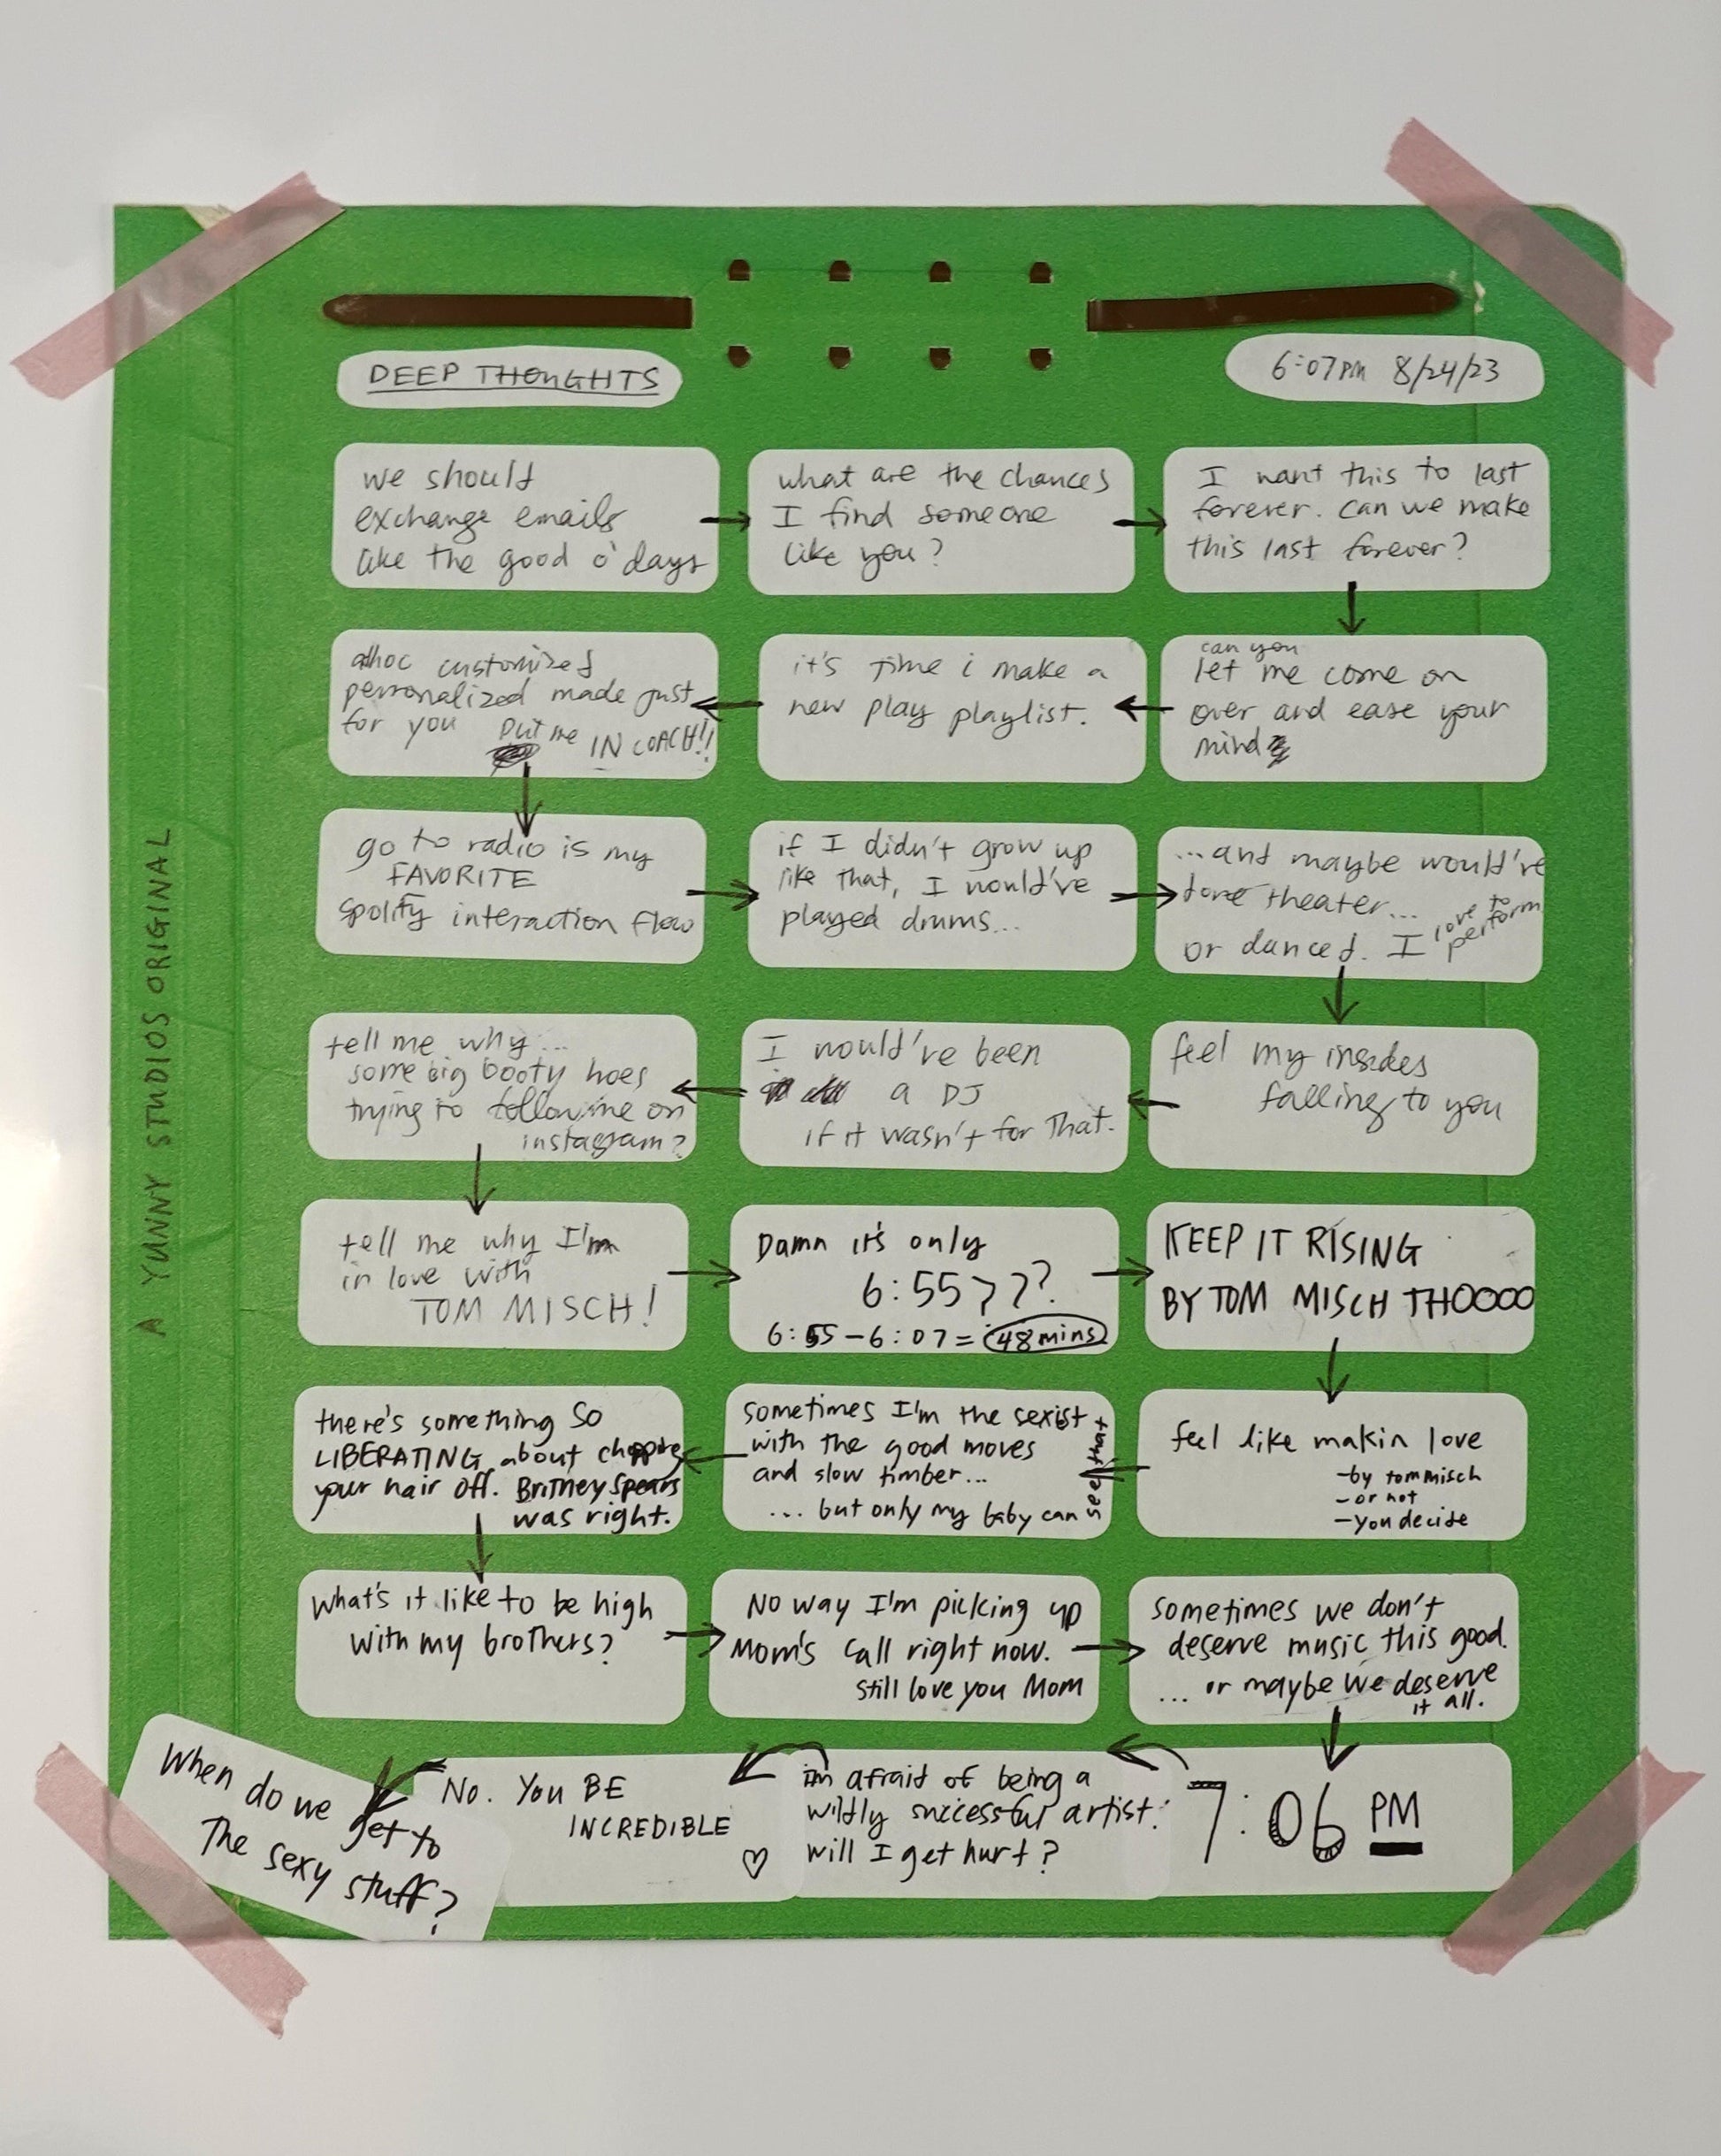 DEEP THOUGHTS
6:07PM 8/24/23
we should
exchange emails
like the good o' days
what are the chances
I find someone
like you?
I want this to last
forever. can we make
this last forever?
can you
let me come on
over and ease your
mind
it's time i make a
new play playlist.
adhoc customized
personalized made just
for you put me IN COACH!!
go to radio is my
FAVORITE
spotify interaction flow
if I didn't grow up
like that, I would've
played drums...
...and maybe would've
done theater...
or danced. I love to
perform
feel my insides
falling to you
I would've been
a DJ
if it wasn't for that.
tell me why...
some big booty hoes
trying to follow me on
instagram?
tell me why I'm
in love with
TOM MISCH!
Damn it's only
6:55???
6:55-6:07=48mins
KEEP IT RISING
BY TOM MISCH THOOOO
feel like makin love
-by tom misch
-or not
-you decide
sometimes I'm the sexist
with the good moves
and slow timber...
...but only my baby can
see that
there's something SO
LIBERATING about chopping
your hair off. Britney Spears
was right.
What's it like to be high
with my brothers?
No way I'm picking up
Mom's call right now.
still love you Mom
sometimes we don't
deserve music this good.
...or maybe we deserve
it all.
7:06 PM
im afraid of being a
wildly successful artist.
will I get hurt?
No. You BE
INCREDIBLE
When do we
get to
The sexy stuff?
A YUNNY STUDIOS ORIGINAL